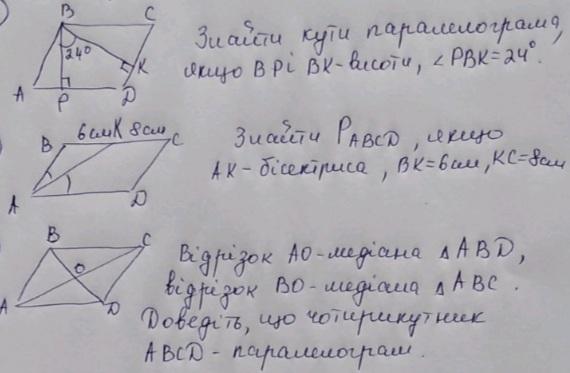 B C
24°
K
A P D
Знайти кути паралелограма,
якщо BP і BK-висоти, ∠PBK=24°.
6см K 8см
B C
A D
Знайти P ABCD, якщо
AK-бісектриса, BK=6см, KC=8см
B C
O
A D
Відрізок AO-медіана △ABD,
відрізок BO-медіана △ABC.
Доведіть, що чотирикутник
ABCD-паралелограм.